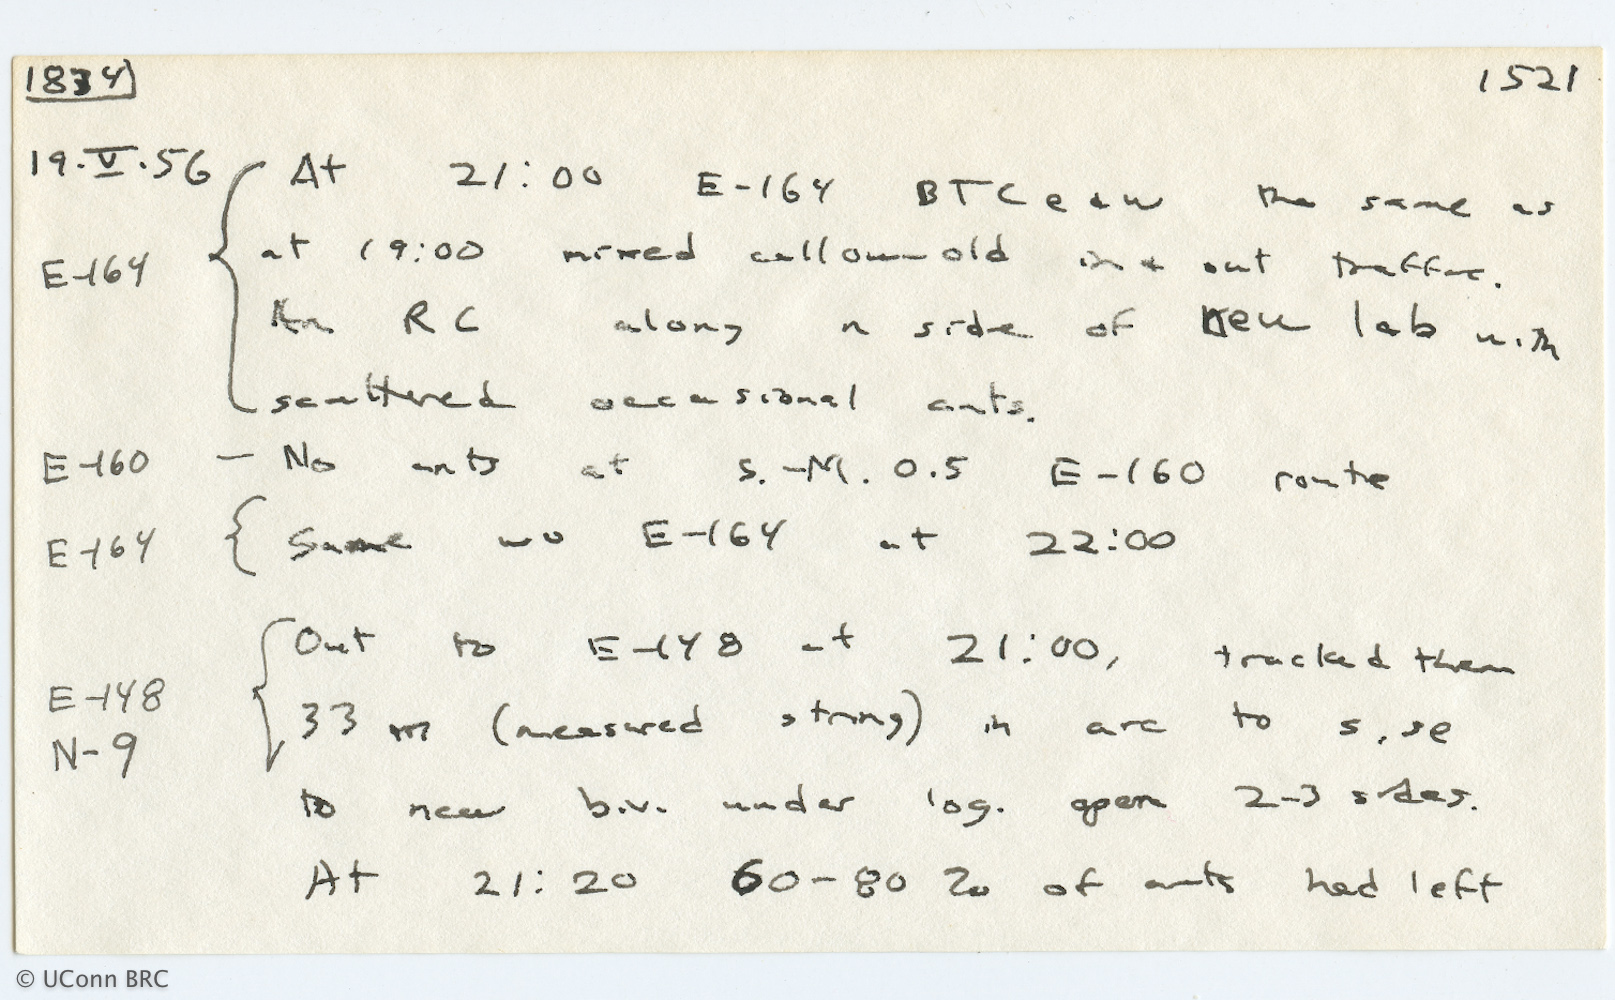 1834 1521
19.V.56 At 21:00 E-164 BTC e & w the same as
E-164 at 19:00 mixed callow-old in & out traffic.
RC along n side of Keu lab with
scattered occasional ants.
E-160 — No ants at S.-M. 0.5 E-160 route
E-164 Same E-164 at 22:00
Out to E-148 at 21:00, tracked them
E-148
N-9
33 m (measured string) in arc to s, se
to new b.v. under log. open 2-3 sides.
At 21:20 60-80 % of ants had left
© UConn BRC